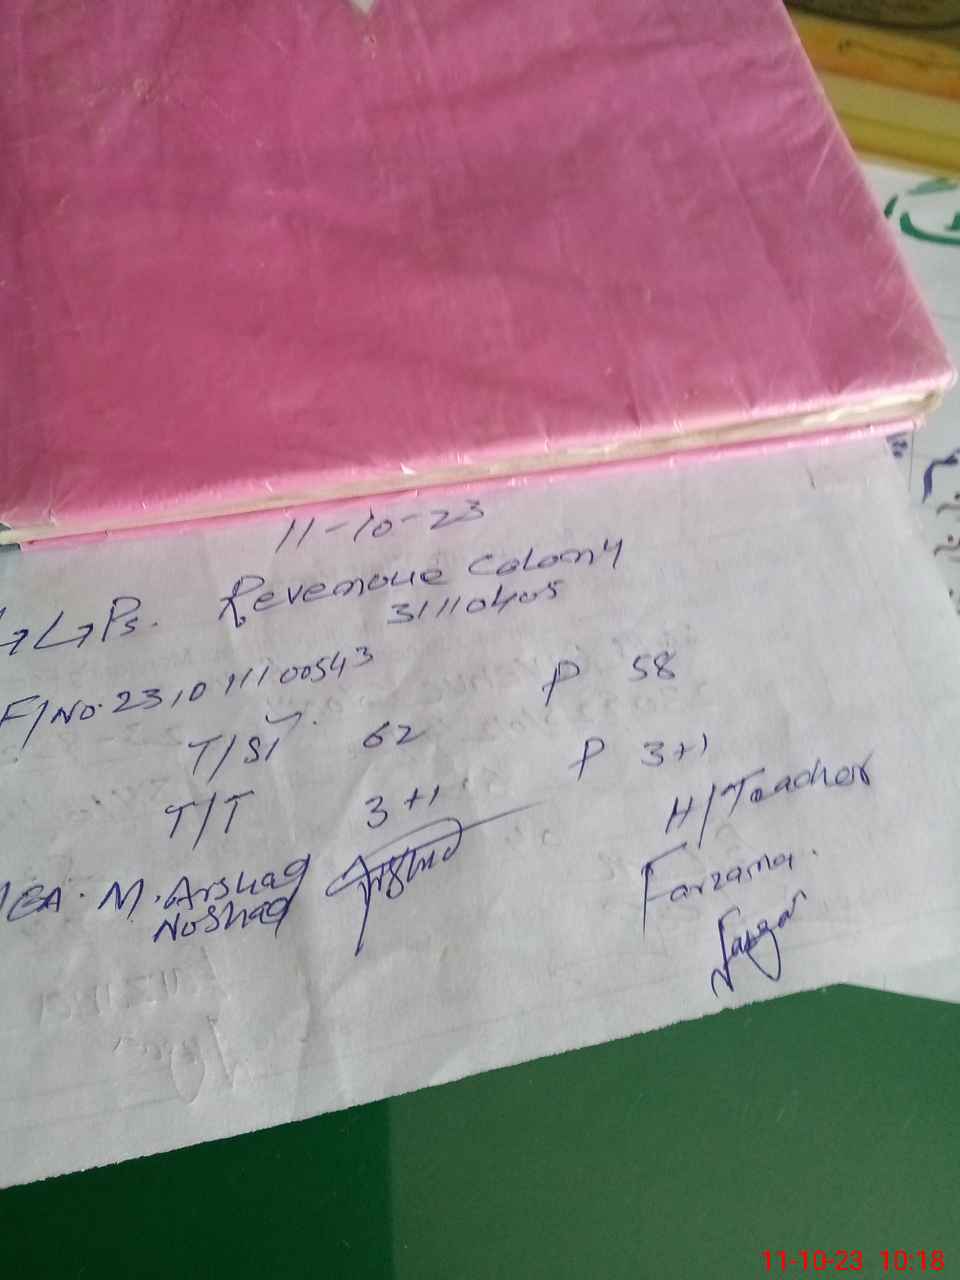 11-10-23
GGPs. Revenoue Colony
31110405
F/No. 2310111100543
T/ST. 62 P 58
T/T 3+1 P 3+1
H/Teacher
MEA. M. Arshad
Noshad
Farzana.
11-10-23 10:18